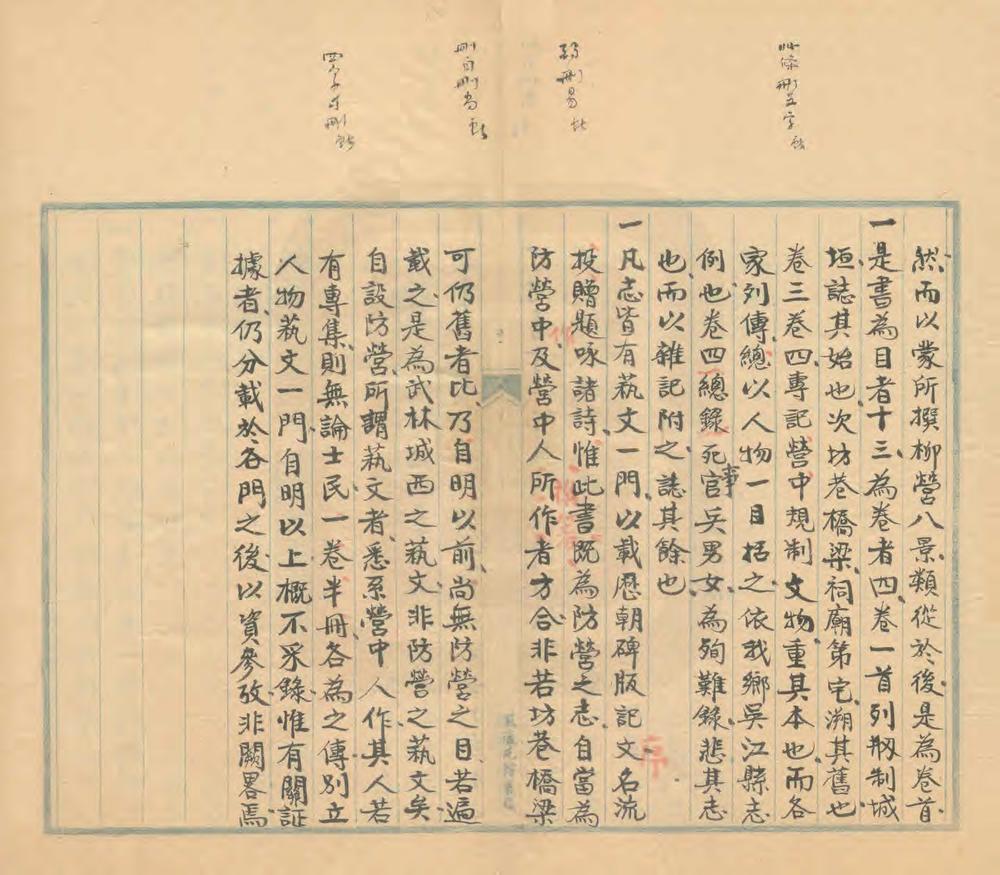 然而以蒙所撰柳營八景類從於後是為卷首
一是書為目者十三為卷者四卷一首列剏制城
垣誌其始也次坊巷橋梁祠廟第宅溯其舊也
卷三卷四專記營中規制文物重其本也而各
家列傳總以人物一目括之依我鄉吳江縣志
例也卷四總錄死事官兵男女為殉難錄悲其志
也而以雜記附之誌其餘也
一凡志皆有蓺文一門以載歷朝碑版記文名流
投贈題咏諸詩惟此書既為防營之志自當為
防營中及營中人所作者方合非若坊巷橋梁
可仍舊者比乃自明以前尚無防營之目若遍
載之是為武林城西之蓺文非防營之蓺文矣
自設防營所謂蓺文者悉系營中人作其人若
有專集則無論士民一卷半冊各為之傳別立
人物蓺文一門自明以上概不采錄惟有關証
據者仍分載於各門之後以資參攷非闕畧焉
此條刪五字
刪易
刪自刪尚
四字可刪
序